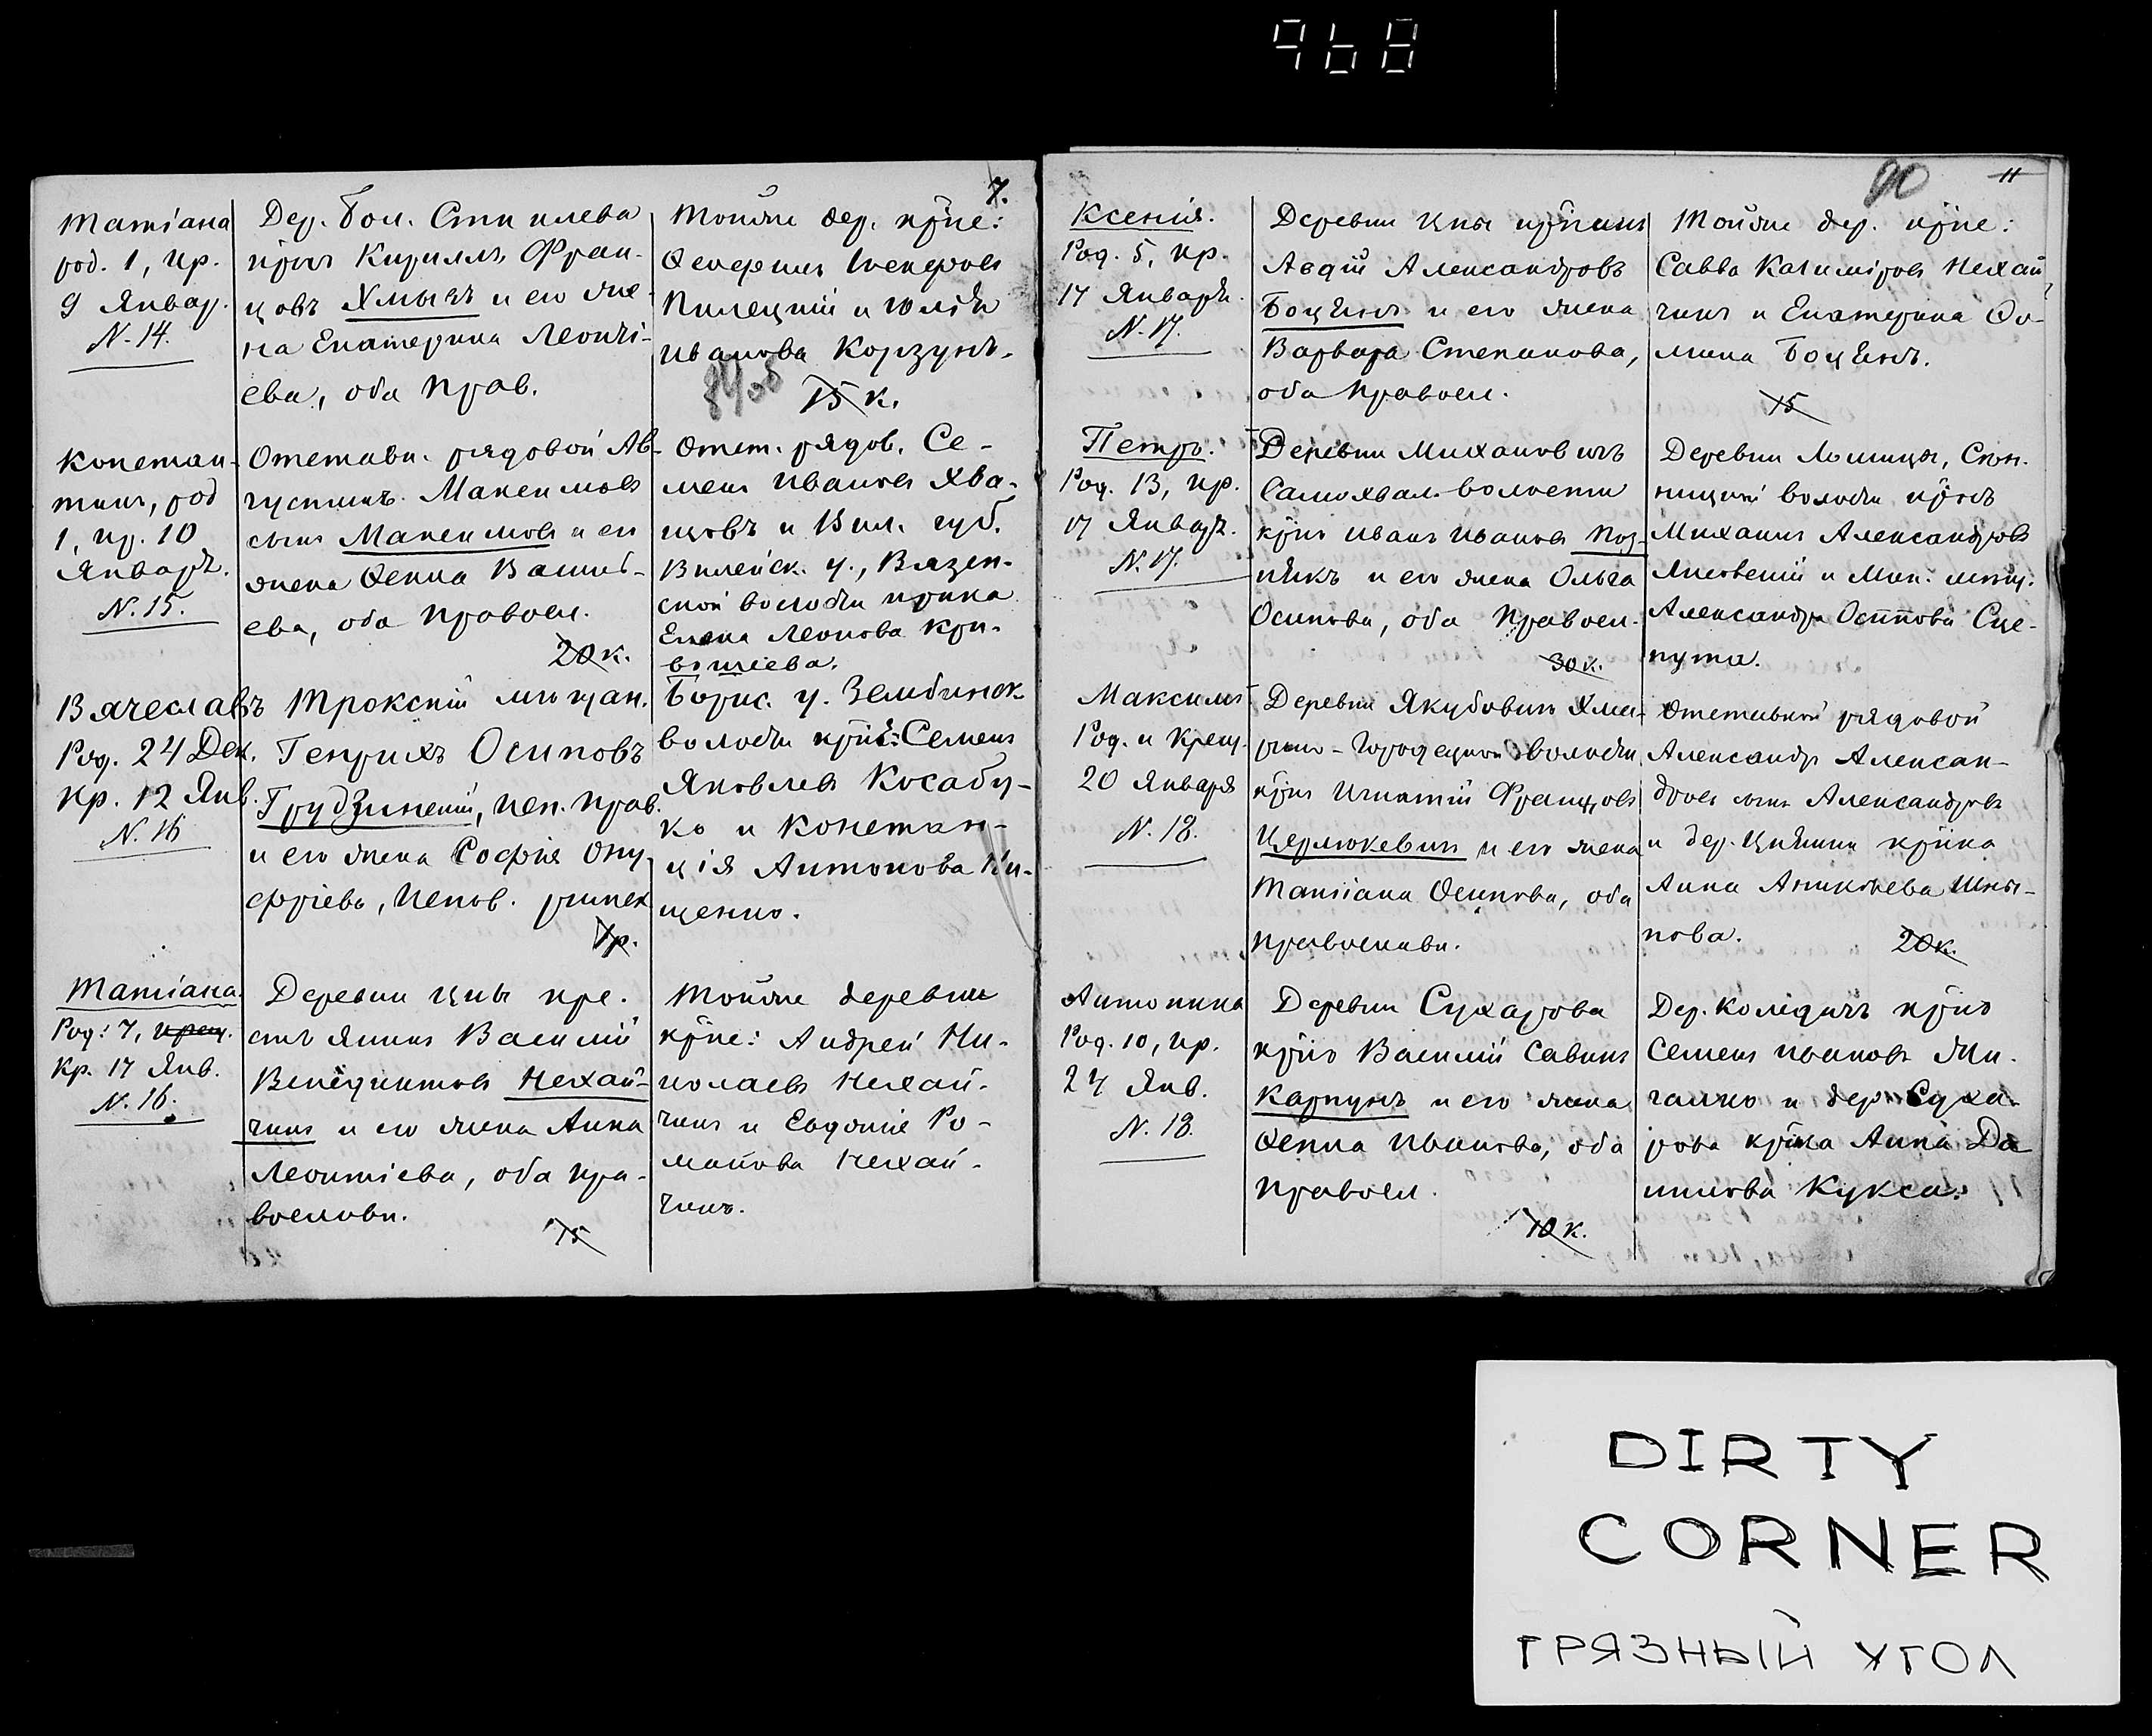 968
7.
Татіана
род. 1, кр.
9 Январ.
N. 14.
Дер. Бол.
Кириллъ Фран-
цовъ Хмызъ и его же-
на Екатерина Леонті-
ева, оба прав.
Тойже дер. крѣне:
Пилецкій и Юлія
Иванова Корзунъ.
84 об
15 к.
Констан-
тинъ, род
1, кр. 10
Январ.
N. 15.
Отставн. рядовой Ав-
густинъ Максимовъ
сынъ Максимовъ и его
жена Ѳекла Васильі-
ева, оба правосл.
20 к.
Отст. рядов. Се-
менъ Ивановъ Хва-
щовъ и Вил. губ.
Вилейск. у., Вязен-
ской волости кр-нка
Елена Леонова Кри-
Вячеславъ
Род. 24 Дек.
кр. 12 Янв.
N. 16
Трокскій мѣщан.
Генрихъ Осиповъ
Грудзинскій, исп. прав.
и его жена Софія Ону-
фріева, испов. римск
1 р.
Борис. у. Зембинск.
волости Семенъ
Яковлевъ Косабу-
ко и Констан-
ція Антонова Ки-
щенко.
Татіана
Род: 7, крещ.
Кр. 17 Янв.
N. 16.
Деревни Цны кре.
стьянинъ Василій
Венедиктовъ Нехай-
чикъ и его жена Анна
Леонтіева, оба пра-
вославн.
15
Тойже деревни
крѣне: Андрей Ни-
колаевъ Нехай-
чикъ и Евдокія Ро-
манова Нехай-
чикъ.
90
11
Ксенія.
Род. 5, кр.
17 Январ.
N. 17.
Деревни Цны
Авдій Александровъ
Боцѣнъ и его жена
Варвара Степанова,
оба правосл.
Тойже дер. крѣне:
Савва Казиміровъ Нехай
чикъ и Екатерина Ѳо-
мина Боцѣнъ.
15
Петръ.
Род. 13, кр.
17 Январ.
N. 17.
Деревни Михановичъ
Самохвал. волости
Иванъ Ивановъ Поз-
някъ и его жена Ольга
Осипова, оба правосл.
30 к.
Деревни Лошицы, Сен.
ницкой волости
Михаилъ Александровъ
и Мин. мѣщ.
Александра Осипова Сце-
пута.
Максимъ
Род. и Крещ.
20 Января
N. 18.
Деревни Якубовичъ Хмы-
рино-Городецкой волости
Игнатій Францовъ
Церлюкевичъ и его жена
Татіана Осипова, оба
православн.
Отставной рядовой
Александръ Алексан-
дровъ сынъ Александровъ
и дер.
Анна
нова.
20 к.
Антонина
Род. 10, кр.
24 Янв.
N. 18.
Деревни Сухарова
Василій Савинъ
Карпукъ и его жена
Ѳекла Иванова, оба
правосл.
10 к.
Дер. Колядичъ
Семенъ Ивановъ Жи-
галко и дер. Суха-
рова Анна Да
нилова Кукса.
DIRTY
CORNER
ГРЯЗНЫЙ УГОЛ